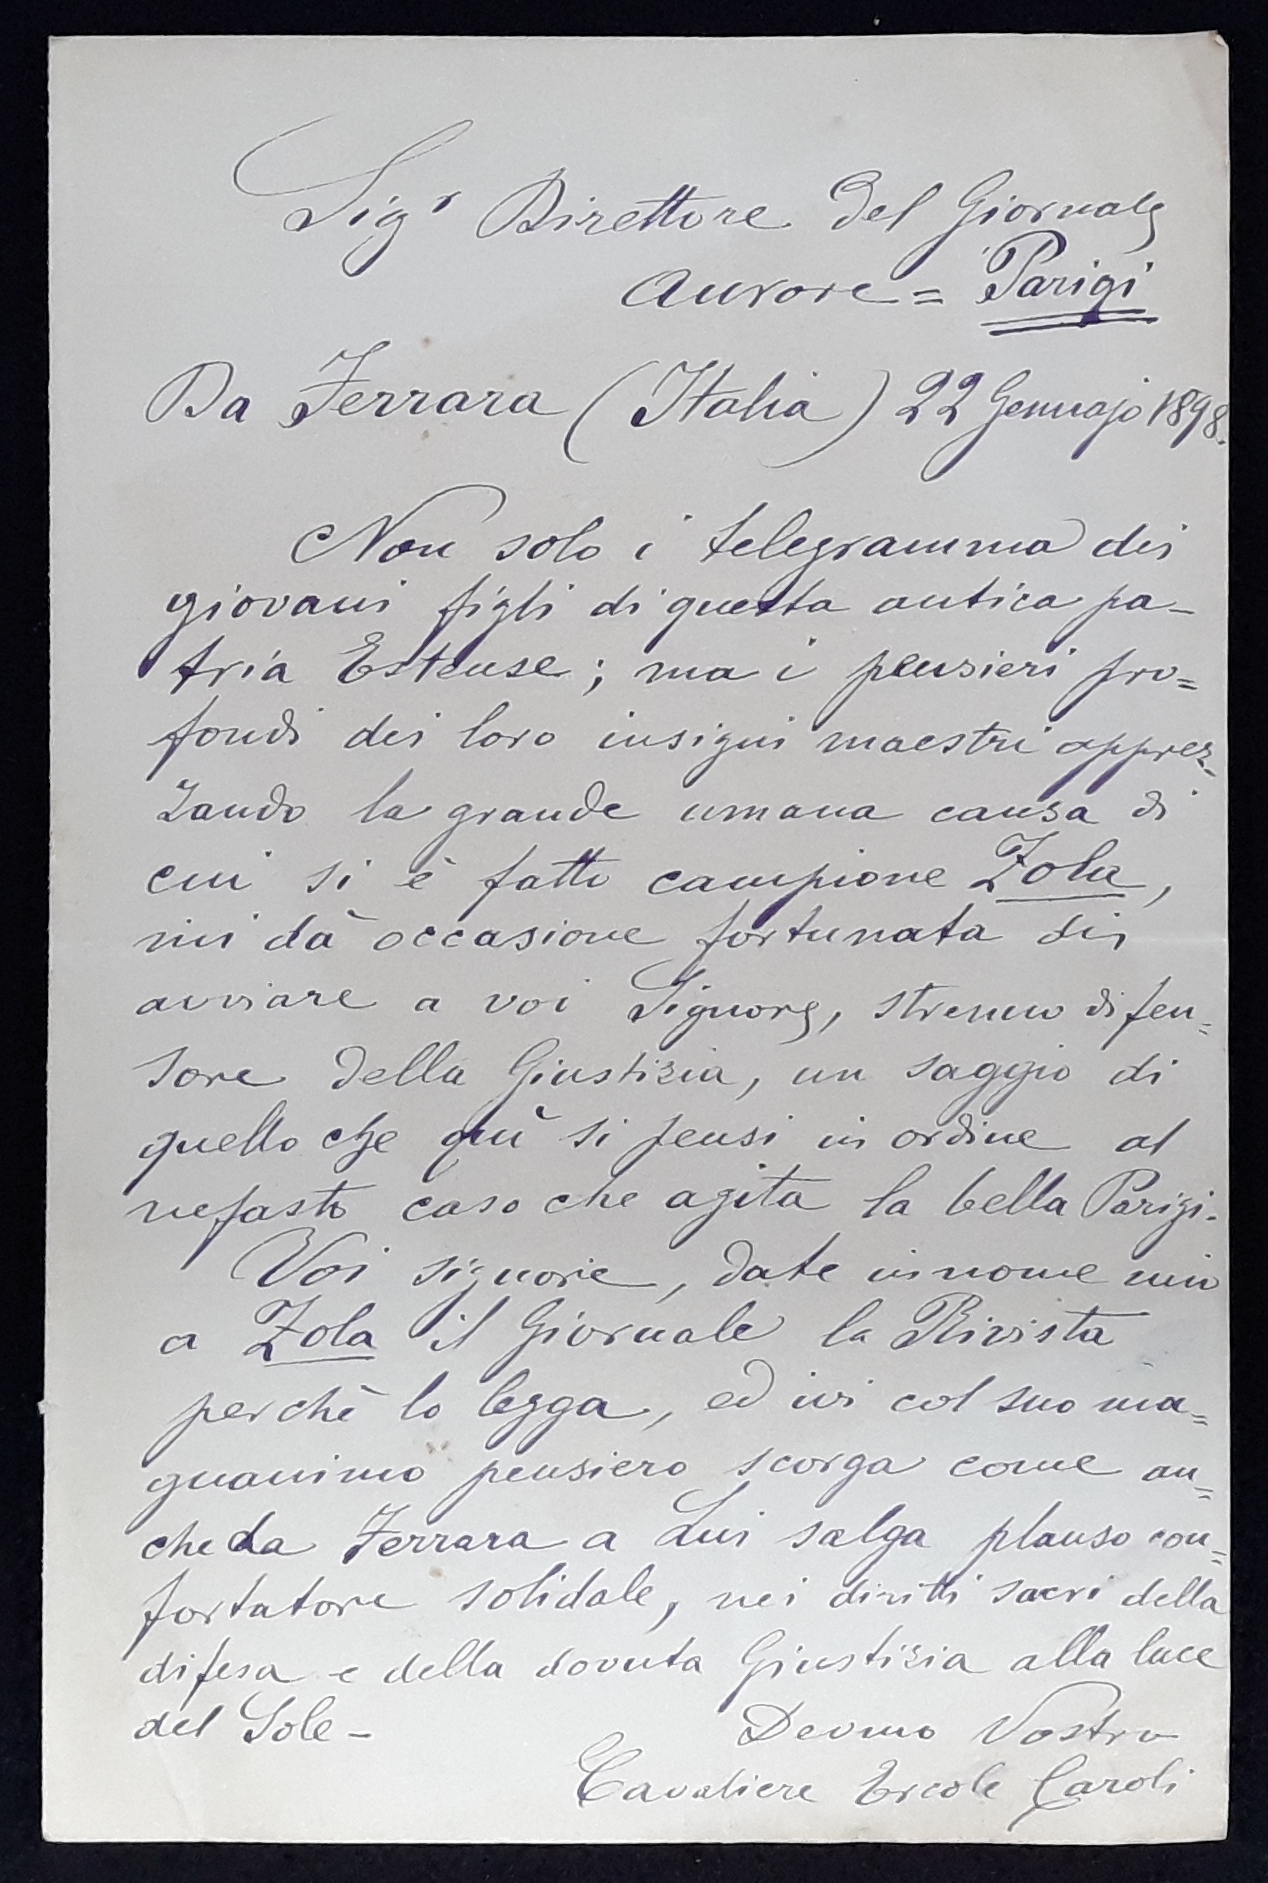 Sigr Direttore del Giornale
Aurore = Parigi
Da Ferrara (Italia) 22 Gennajo 1898.
Non solo i telegramma dei
giovani figli di questa antica pa-
tria Estense; ma i pensieri pro=
fondi dei loro insigni maestri apprez=
zando la grande umana causa di
cui si è fatto campione Zola,
mi dà occasione fortunata di
avviare a voi Signore, strenuo difen=
sore della Giustizia, un saggio di
quello che quì si pensi in ordine al
nefasto caso che agita la bella Parigi.
Voi signore, date in nome mio
a Zola il Giornale la Rivista
perchè lo legga, ed ivi col suo ma=
gnanimo pensiero scorga come an=
che da Ferrara a Lui salga plauso con=
fortatore solidale, nei diritti sacri della
difesa e della dovuta Giustizia alla luce
del Sole -
Devmo Vostro
Cavaliere Ercole Caroli